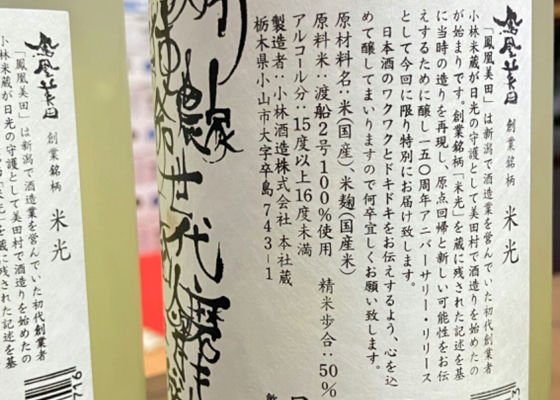 鳳凰美田 創業銘柄 米光
「鳳凰美田」は新潟で酒造業を営んでいた初代創業者
小林米蔵が日光の守護として美田村で酒造りを始めたの
が始まりです。創業銘柄「米光」を蔵に残された記述を基
に当時の造りを再現し、原点回帰と新しい可能性をお伝
えするために醸し一五〇周年アニバーサリー・リリース
として今回に限り特別にお届け致します。
日本酒のワクワクとドキドキをお伝えするよう、心を込
めて醸してまいりますので何卒宜しくお願い致します。
原材料名：米(国産)、米麹(国産米)
原料米：渡船2号100%使用 精米歩合：50%
アルコール分：15度以上16度未満
製造者：小林酒造株式会社 本社蔵
栃木県小山市大字卒島743-1
鳳凰美田 創業銘柄 米光
「鳳凰美田」は新潟で酒造業を営んでいた初代創業者
小林米蔵が日光の守護として美田村で酒造りを始めたの